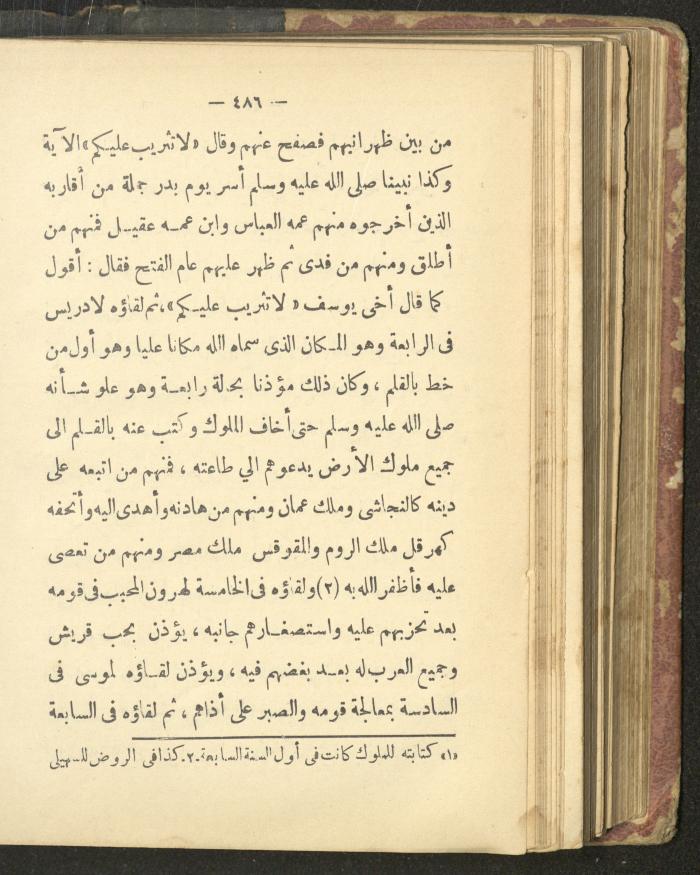 — ٤٨٦ —
من بين ظهرانيهم فصفح عنهم وقال «لا تثريب عليكم» الآية
وكذا نبينا صلى الله عليه وسلم أسر يوم بدر جملة من أقاربه
الذين أخرجوه منهم عمه العباس وابن عمه عقيل فمنهم من
أطلق ومنهم من فدى ثم ظهر عليهم عام الفتح فقال : أقول
كما قال أخى يوسف « لا تثريب عليكم»،ثم لقاؤه لادريس
فى الرابعة وهو المكان الذى سماه الله مكانا عليا وهو أول من
خط بالقلم ، وكان ذلك مؤذنا بحالة رابعة وهو علو شأنه
صلى الله عليه وسلم حتى أخاف الملوك وكتب عنه بالقلم الى
جميع ملوك الأرض يدعوهم الي طاعته ، فمنهم من اتبعه على
دينه كالنجاشى وملك عمان ومنهم من هادنه وأهدى اليه وأتحفه
كهرقل ملك الروم والمقوقس ملك مصر ومنهم من تعصى
عليه فأظفر الله به (٢) ولقاؤه فى الخامسة لهرون المحبب فى قومه
بعد تحزبهم عليه واستصغارهم جانبه ، يؤذن بحب قريش
وجميع العرب له بعد بغضهم فيه ، ويؤذن لقاؤه لموسى فى
السادسة بمعالجة قومه والصبر على أذاهم ، ثم لقاؤه فى السابعة
«١» كتابته للملوك كانت فى أول السنة السابعة.٢.كذا فى الروض للسهيلى